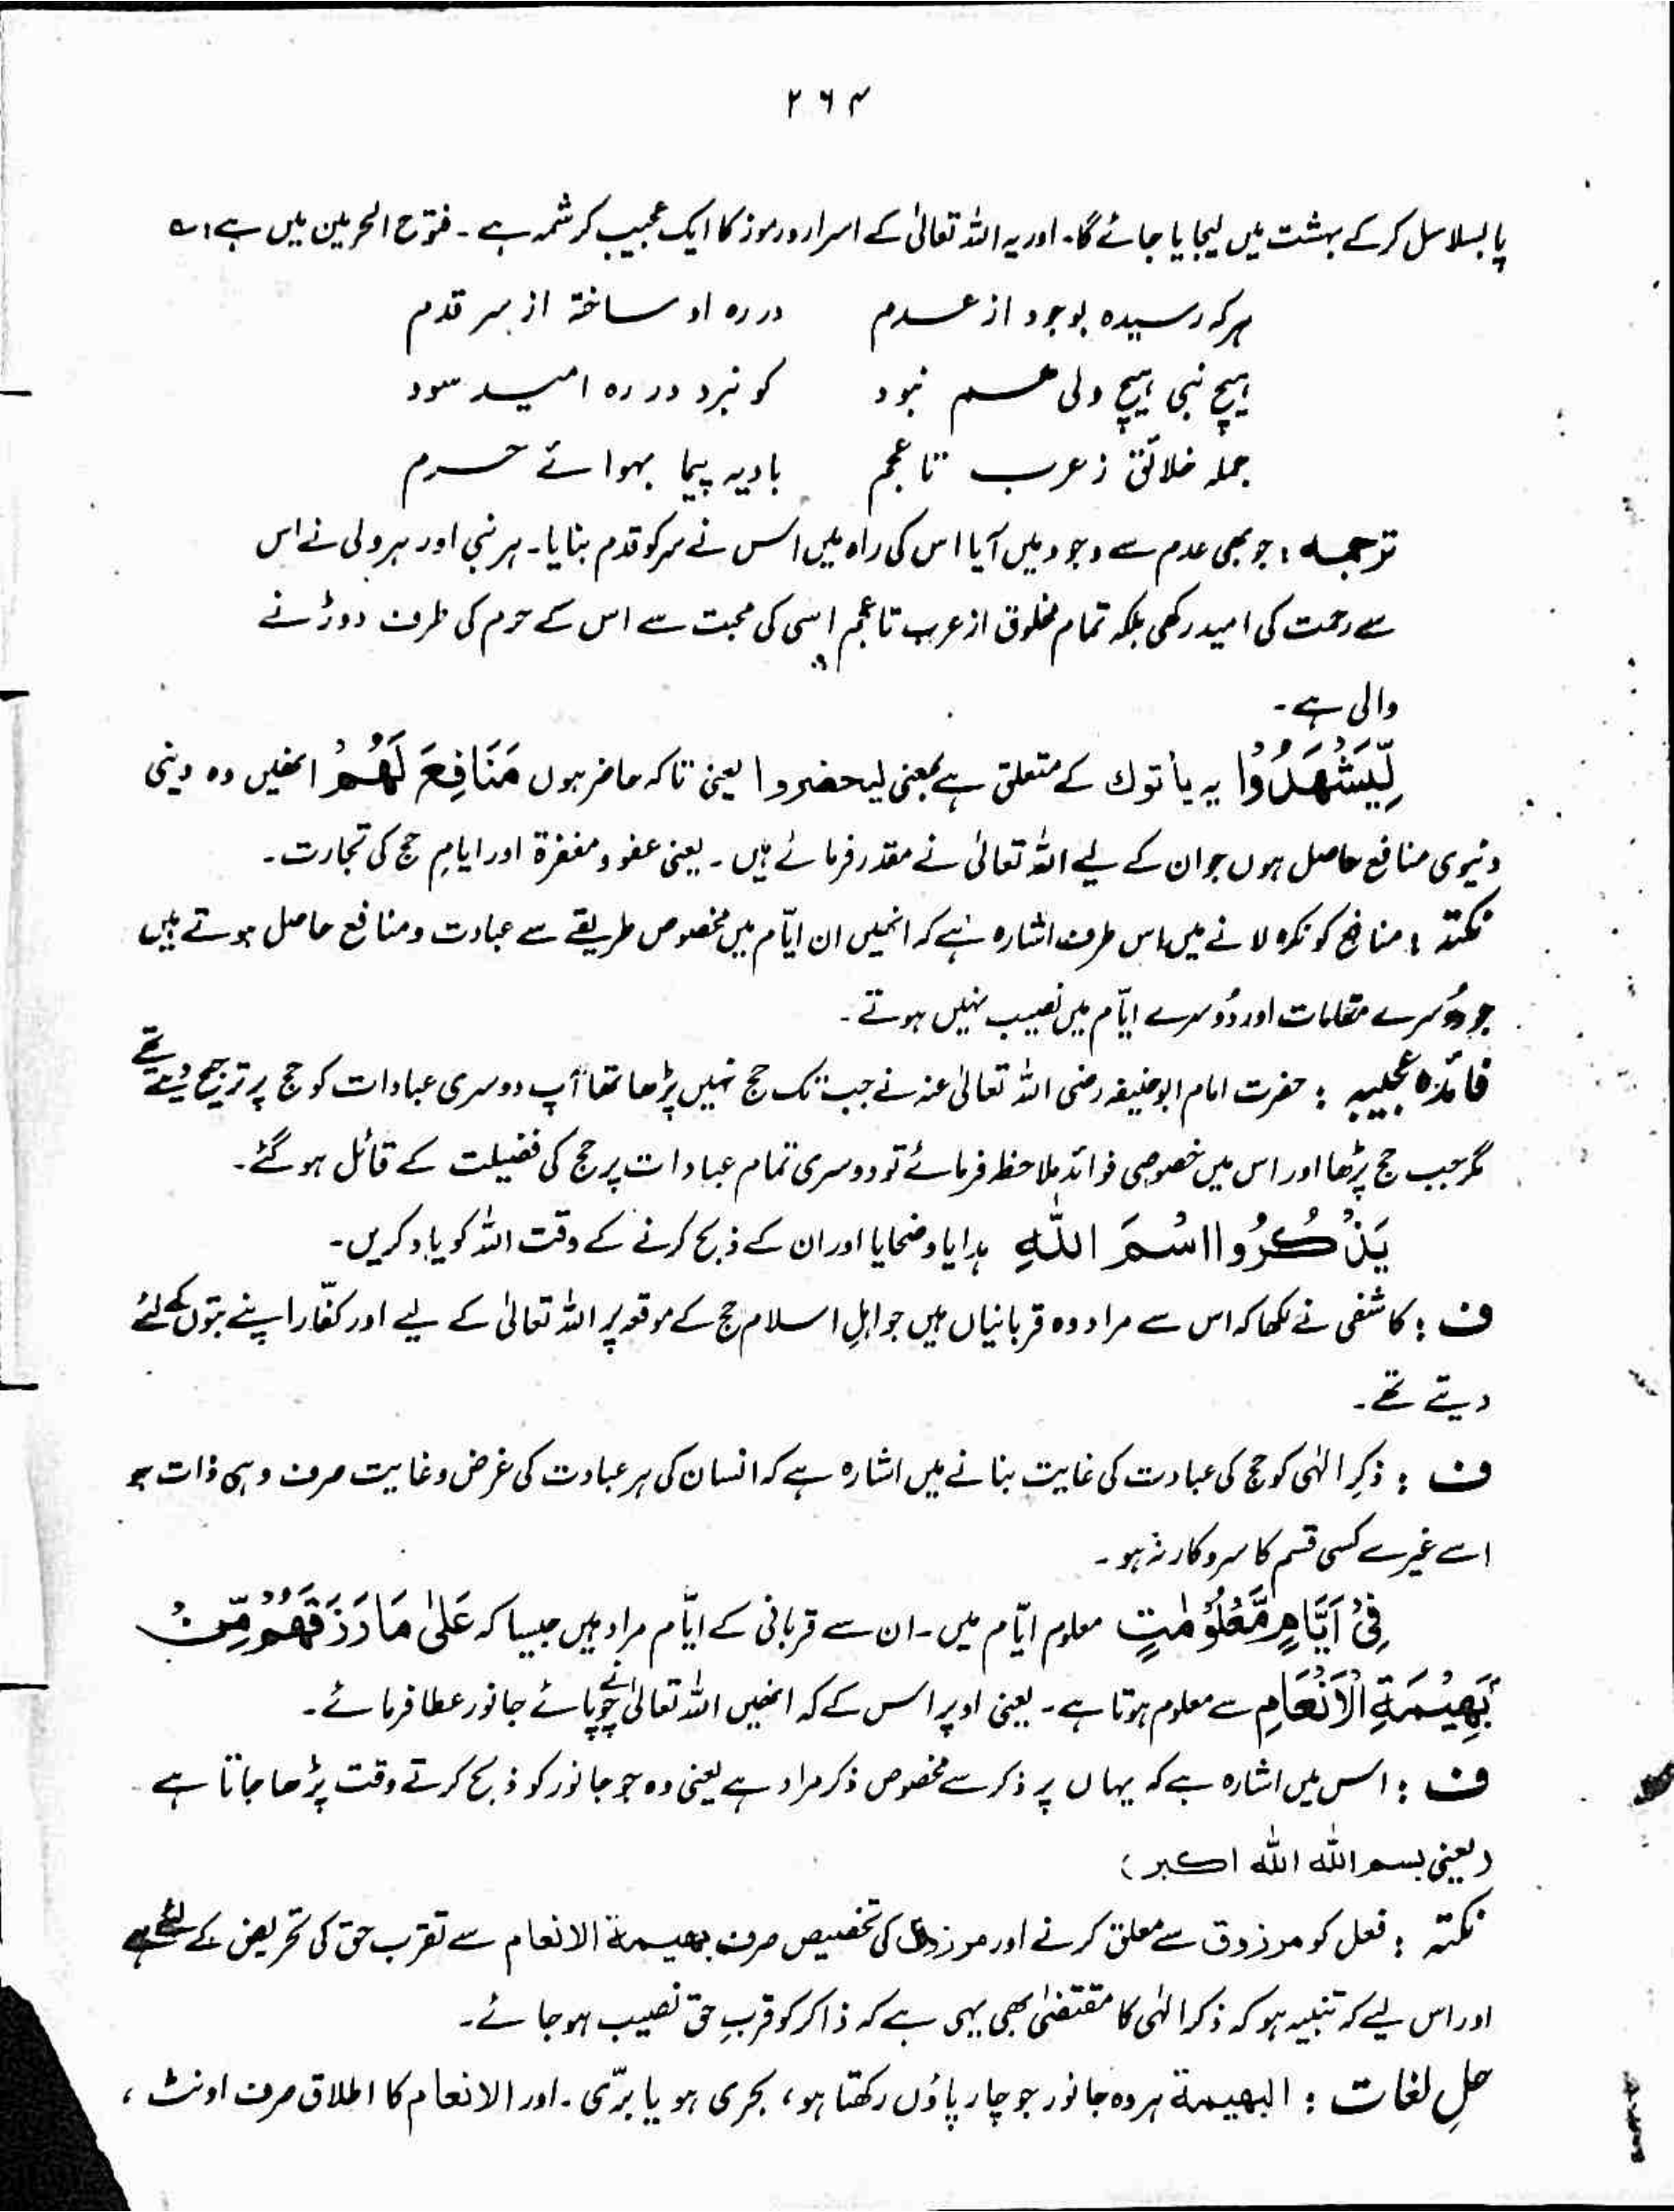 ۲۶۴
پا بسلاسل کر کے بہشت میں لیجایا جائے گا۔ اور یہ اللہ تعالیٰ کے اسرار و رموز کا ایک عجیب کرشمہ ہے۔ فتوح الحرمین میں ہے: ؎
ہر کہ رسیدہ بوجود از عدم در رہ او ساختۃ از سر قدم
ہیچ نبی ہیچ ولی ہم نبود کو نبرد در رہ امید سود
جملہ خلائق ز عرب تا عجم بادیہ پیما بہوائے حرم
ترجمہ : جو بھی عدم سے وجود میں آیا اس کی راہ میں اس نے سر کو قدم بنایا۔ ہر نبی اور ہر ولی نے اس
سے رحمت کی امید رکھی بلکہ تمام مخلوق از عرب تا عجم اسی کی محبت سے اس کے حرم کی طرف دوڑنے
والی ہے۔
لِّیَشْهَدُوْا یہ یأتوك کے متعلق ہے بمعنی لیحضروا یعنی تاکہ حاضر ہوں مَنَافِعَ لَهُمْ انھیں وہ دینی
دنیوی منافع حاصل ہوں جو ان کے لیے اللہ تعالیٰ نے مقدر فرمائے ہیں۔ یعنی عفو و مغفرۃ اور ایامِ حج کی تجارت۔
نکتہ : منافع کو نکرہ لانے میں اس طرف اشارہ ہے کہ انھیں ان ایّام میں مخصوص طریقے سے عبادت و منافع حاصل ہوتے ہیں
جو دُوسرے مقامات اور دُوسرے ایّام میں نصیب نہیں ہوتے۔
فائدہ عجیبہ : حضرت امام ابوحنیفہ رضی اللہ تعالیٰ عنہ نے جب تک حج نہیں پڑھا تھا آپ دوسری عبادات کو حج پر ترجیح دیتے تھے
مگر جب حج پڑھا اور اس میں خصوصی فوائد ملاحظہ فرمائے تو دوسری تمام عبادات پر حج کی فضیلت کے قائل ہو گئے۔
یَذْكُرُوا اسْمَ اللّٰهِ ہدایا و ضحایا اور ان کے ذبح کرنے کے وقت اللہ کو یاد کریں۔
ف : کاشفی نے لکھا کہ اس سے مراد وہ قربانیاں ہیں جو اہلِ اسلام حج کے موقعہ پر اللہ تعالیٰ کے لیے اور کفّار اپنے بتوں کے لئے
دیتے تھے۔
ف : ذکرِ الٰہی کو حج کی عبادت کی غایت بنانے میں اشارہ ہے کہ انسان کی ہر عبادت کی غرض و غایت صرف وہی ذات ہو
اسے غیر سے کسی قسم کا سروکار نہ ہو۔
فِیْ اَیَّامٍ مَّعْلُوْمٰتٍ معلوم ایّام میں۔ ان سے قربانی کے ایّام مراد ہیں جیسا کہ عَلٰی مَا رَزَقَهُمْ مِّنْ
بَهِیْمَةِ الْاَنْعَامِ سے معلوم ہوتا ہے۔ یعنی اوپر اس کے کہ انھیں اللہ تعالیٰ نے چوپائے جانور عطا فرمائے۔
ف : اس میں اشارہ ہے کہ یہاں پر ذکر سے مخصوص ذکر مراد ہے یعنی وہ جو جانور کو ذبح کرتے وقت پڑھا جاتا ہے۔
(یعنی بسم اللہ اللہ اکبر)
نکتہ : فعل کو مرزوق سے معلق کرنے اور مرزوق کی تخصیص صرف بهیمة الانعام سے تقرب حق کی تحریض کے لئے ہے
اور اس لیے کہ تنبیہ ہو کہ ذکر الٰہی کا مقتضیٰ بھی یہی ہے کہ ذاکر کو قربِ حق نصیب ہو جائے۔
حلِ لغات : البهیمة ہر وہ جانور جو چار پاؤں رکھتا ہو، بحری ہو یا برّی۔ اور الانعام کا اطلاق صرف اونٹ ،